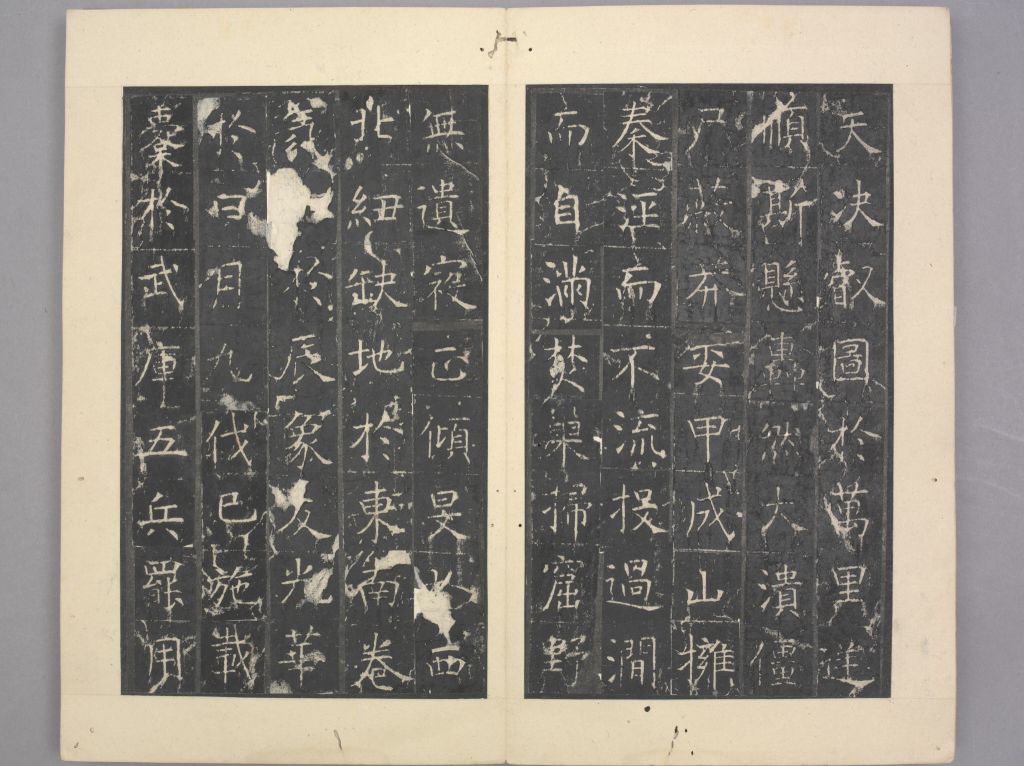 天决叡圖於萬里進
斯懸轟然大潰僵
尸蔽莽委甲成山擁
而不流投過澗
而自滿焚巢掃窟野
無遺寇正傾旻西
北紐缺地於東南卷
氛於辰象反光華
於日月九伐已施載
櫜於武庫五兵罷用